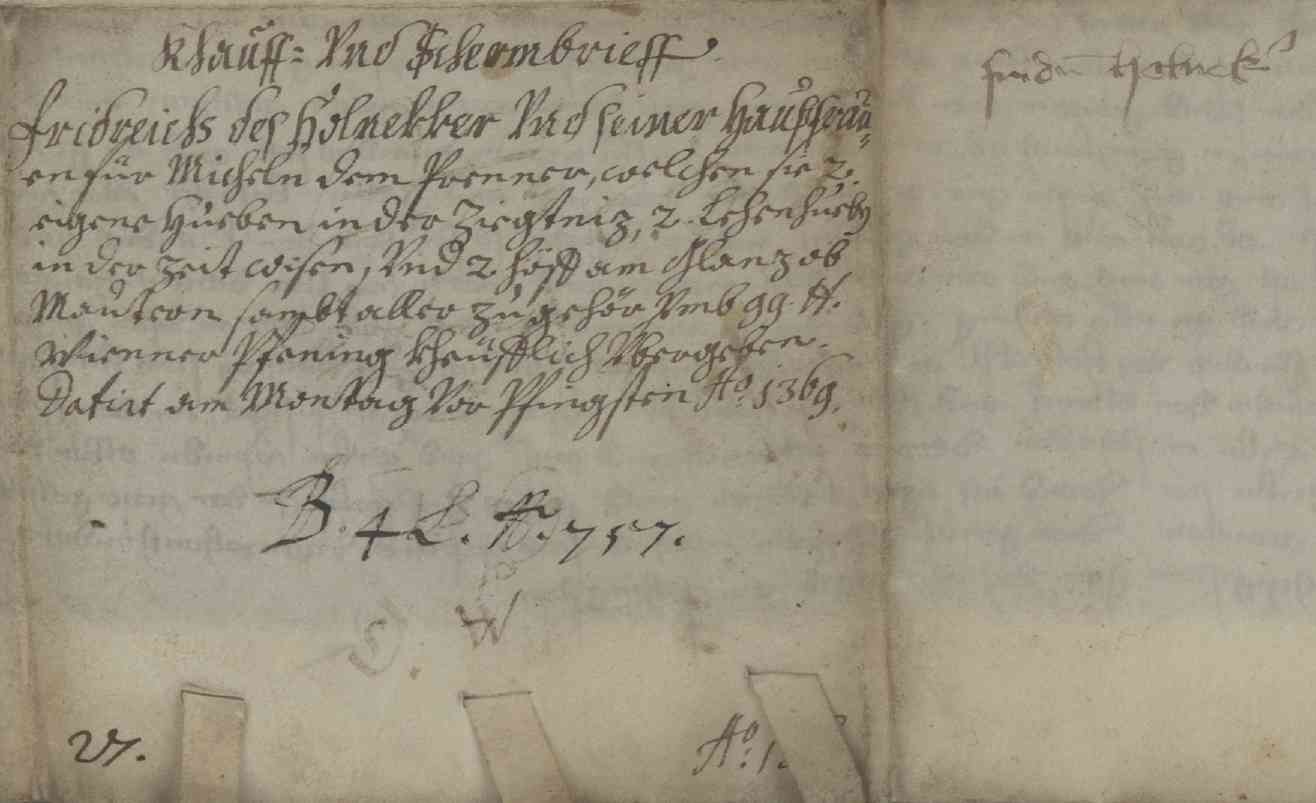 Khauff= Vnd Schermbrieff.
Fridreichs des Hölnekker Vnd seiner Haussfrau=
en für Micheln dem Prenner, welchen sie 2.
eigene Hueben in der Ziegtniz, 2. Lehenhueben
in der Zeit wisen, Vnd 2 höff am Glanz ob
Mautern sambt aller zugehör Vmb 99 ℔.
Wienner Pfening kheüfflich Vbergeben.
Datirt am Montag Vor Pfingsten Aº. 1369.
B. 4 L. No. 757.
W
27.
Aº. 1